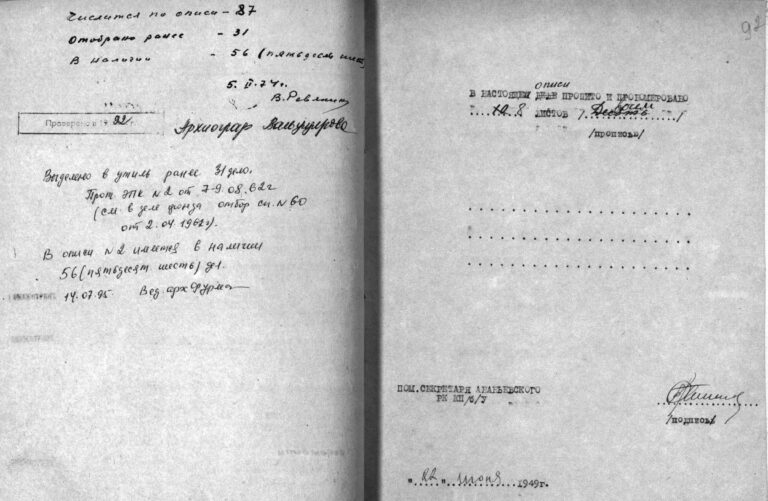 Числится по описи - 87
Отобрано ранее - 31
В наличии - 56 (пятьдесят шесть)
5. II. 74г.
В. Ревякин
Проверено в 19 92
Археограф
Выделено в утиль ранее 31 дело.
Прот. ЭПК №2 от 7-9.08.62г
(см. в деле фонда отбор. сп. №60
от 2.04.1962г).
В описи №2 имеется в наличии
56 (пятьдесят шесть) д.
14.07.95. Вед. арх Фурман
92
описи
В НАСТОЯЩЕМ ДЕЛЕ ПРОШИТО И ПРОНУМЕРОВАНО
10 8 ЛИСТОВ / Десять восем /
/прописью/
ПОМ. СЕКРЕТАРЯ АНАНЬЕВСКОГО
РК КП/б/У
/подпись/
"22" июня 1949г.